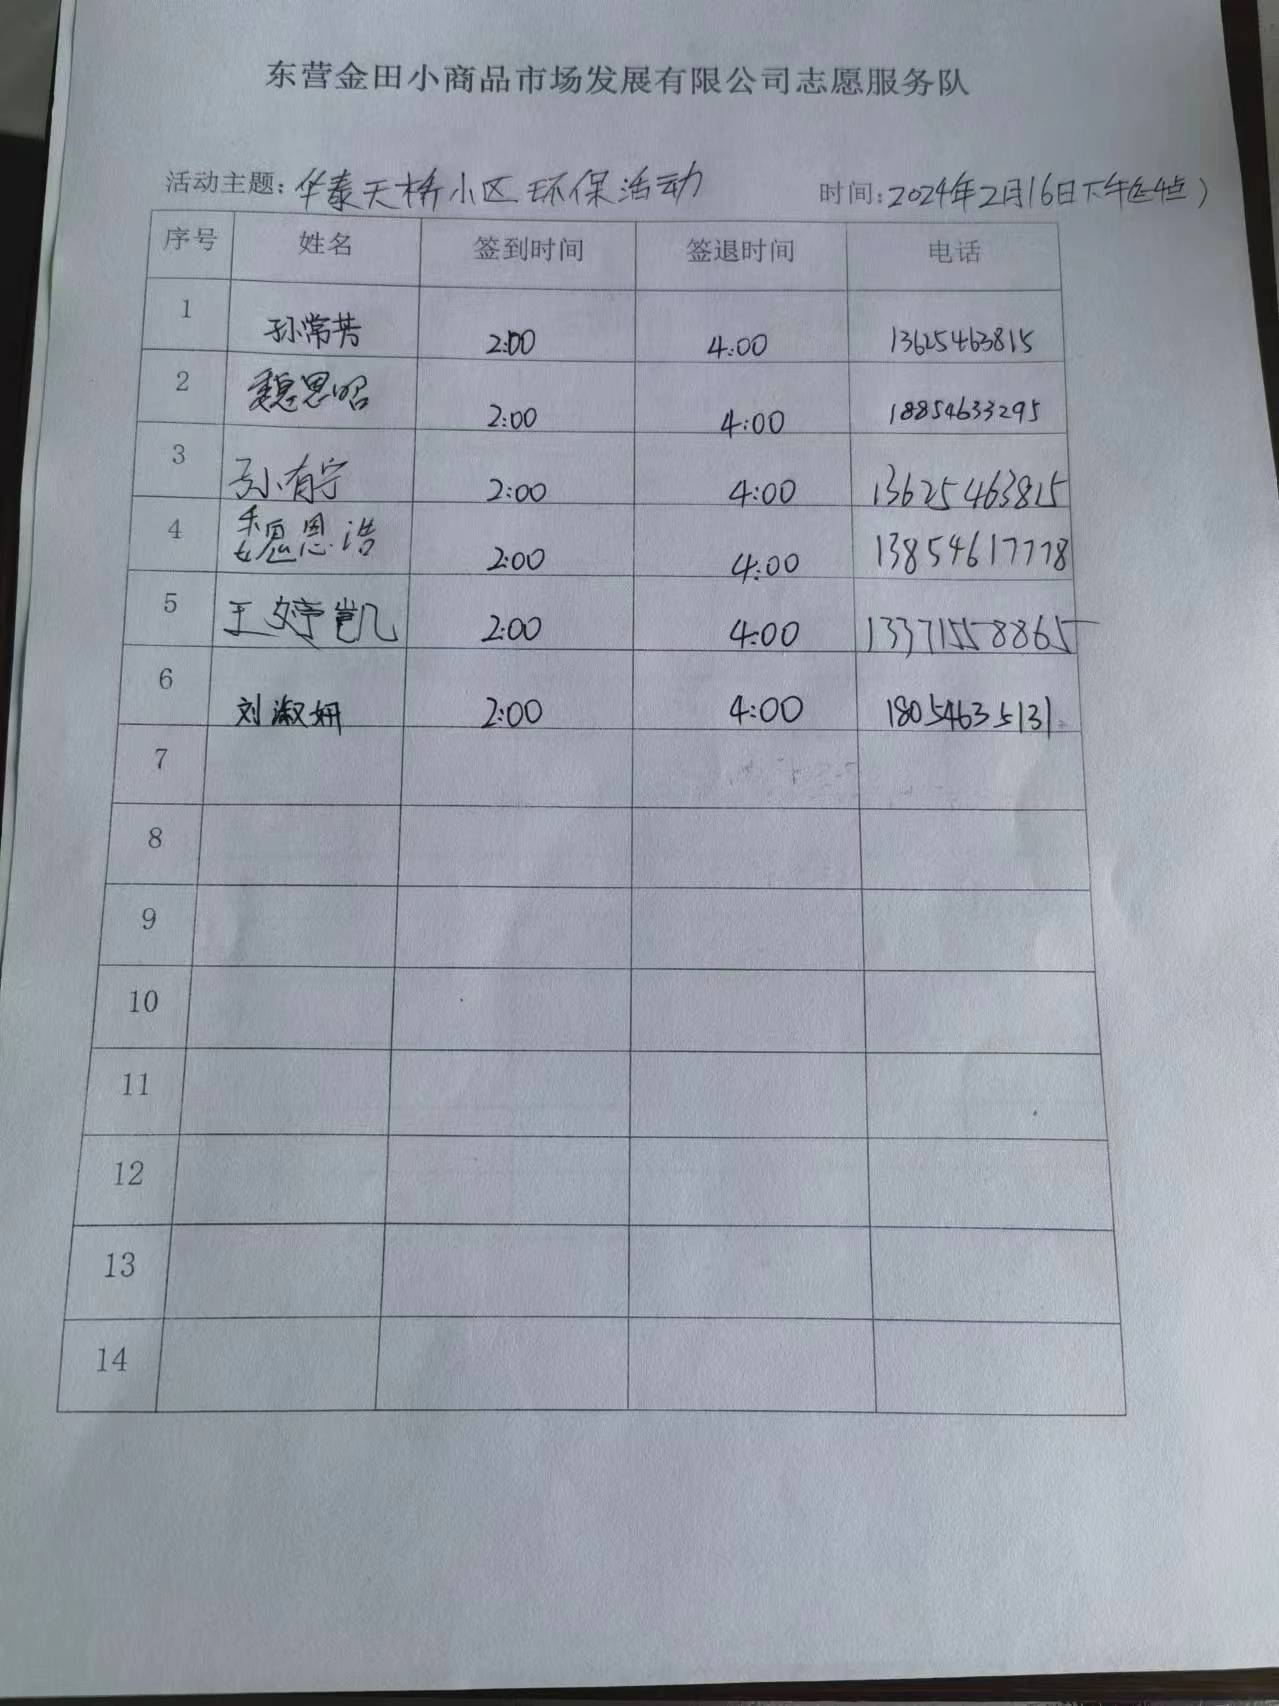 东营金田小商品市场发展有限公司志愿服务队
活动主题：华泰天桥小区环保活动 时间：2024年2月16日下午2-4点）
序号 姓名 签到时间 签退时间 电话
1 孙常芳 2:00 4:00 13625463815
2 魏恩昭 2:00 4:00 18854633295
3 孙有宁 2:00 4:00 13625463815
4 魏恩浩 2:00 4:00 13854617778
5 王婷凯 2:00 4:00 13371558865
6 刘淑妍 2:00 4:00 18054635131
7
8
9
10
11
12
13
14